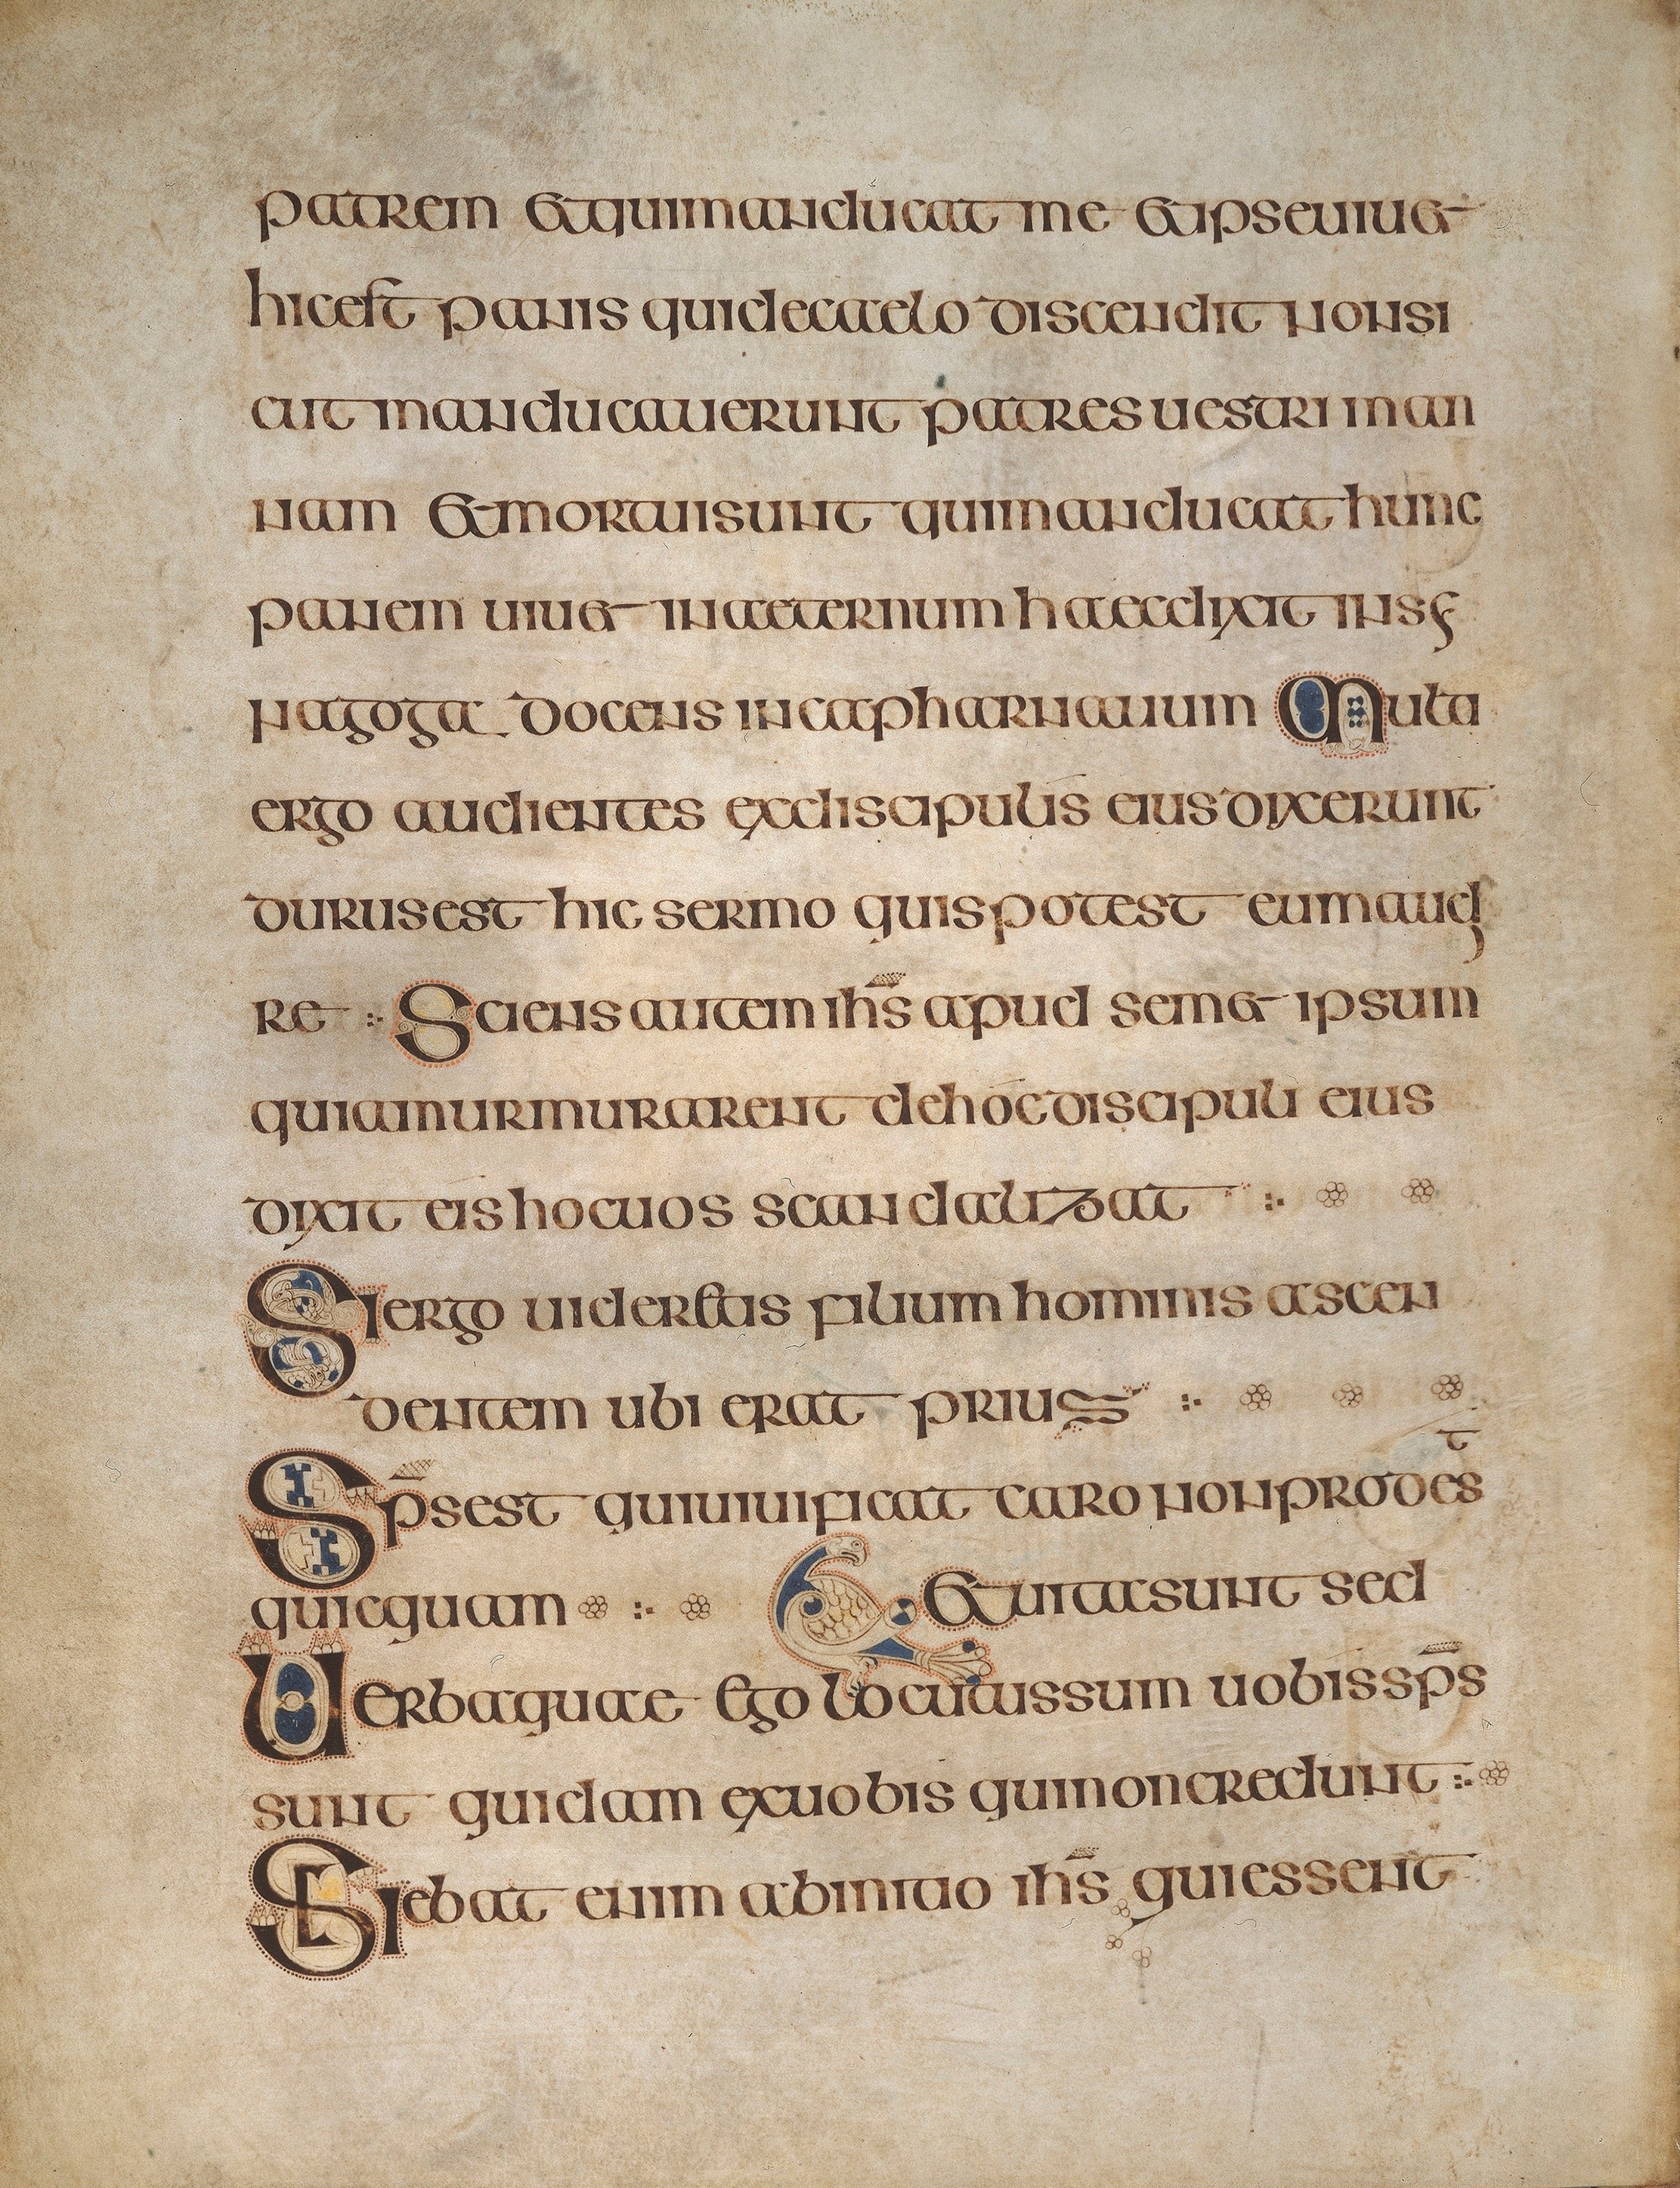 patrem et qui manducat me et ipse uiuet
hic est panis qui de caelo discendit non si
cut manducauerunt patres uestri man
nam et mortui sunt qui manducat hunc
panem uiuet in aeternum haec dixit in sy
nagoga docens in capharnauum Multi
ergo audientes ex discipulis eius dixerunt
durus est hic sermo quis potest eum audi
re Sciens autem ihs̄ apud semet ipsum
quia murmurarent de hoc discipuli eius
dixit eis hoc uos scandalizat
Si ergo uideretis filium hominis ascen
dentem ubi erat prius
Sp̄s est qui uiuificat caro non prodest
quicquam et uita sunt sed
Uerba quae ego locutus sum uobis sp̄s
sunt quidam ex uobis qui non credunt
Siebat enim ab initio ihs̄ qui essent